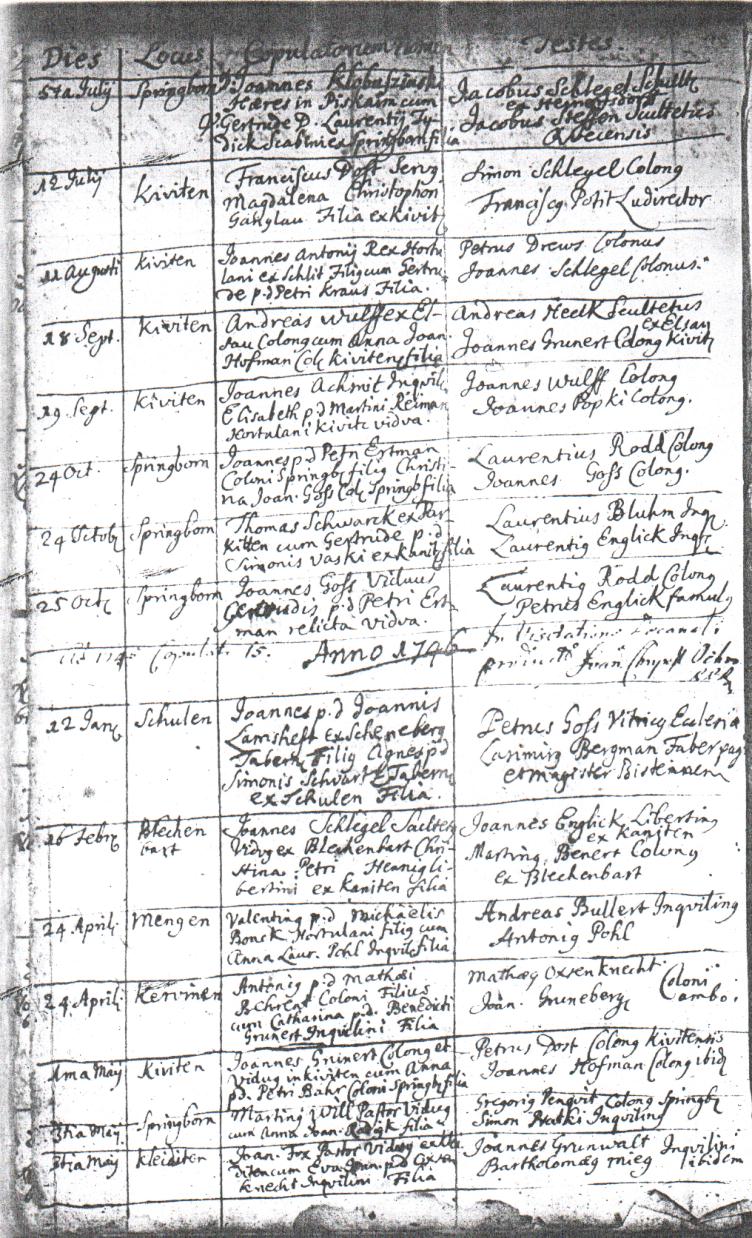 Dies Locus Copulatorum Nomen Testes
5ta July Springborn
Joannes Klobuszinski
Hæres in Piskaim cum
Gertrude D. Laurentij Ty-
dick Scabini ex Springborn filia
Jacobus Schlegel Schultz
Jacobus Steffen Scultetus
12 July Kiviten
Franciscus Dost Servq
Magdalena Christophori
Ganglau Filia ex Kivit
Simon Schlegel Colonq
Franciscq Potit Ludirector
11 Augusti Kiviten
Joannes Antonij Rex Hortu
lani ex Schlit Filiq cum Gertru
de p.d Petri Kraus Filia.
Petrus Drews Colonus
Joannes Schlegel Colonus.
18 Sept. Kiviten
Andreas Wulff ex El-
sau Colonq cum Anna Joan.
Hofman Col: Kiviten filia
Andreas Heelk Scultetus
ex Elsau
Joannes Grunert Colonq Kivit
19 Sept. Kiviten
Joannes Achmit Inqvili
Elisabeth p.d Martini Reiman
Hortulani Kivit vidva.
Joannes Wulff Colonq
Joannes Popki Colonq.
24 Oct. Springborn
Joannes p.d Petri Ertman
Coloni Springb filiq Christi-
na Joan. Goss Col: Springb filia
Laurentius Rodd Colonq
Joannes Goss Colonq.
24 Octob Springborn
Thomas Schwarck ex Par-
kitten cum Gertrude p.d
Simonis Vaski ex Kanit filia
Laurentius Bluhm Inq
Laurentiq Englick Inq
25 Oct Springborn
Joannes Goss Viduus
Gertrudis p.d Petri Ert-
man relicta vidva.
Laurentiq Rodd Colonq
Petrus Englick famulq
Copulati 15. Anno 1746
In Visitatione Decanali
12 Jan Schulen
Joannes p.d Joannis
Lamsheft ex Scheneberg
Tabern Filiq Agnes p.d
Simonis Schvart Tabern
ex Schulen Filia.
Petrus Goss Vitricq Ecclesiæ
Casimirq Bergman Faber pag
et magister Bistennen
16 Febr Blechen
bart
Joannes Schlegel Scultetq
Viduq ex Blechenbart Chri-
stina Petri Hennig li-
bertini ex Kaniten filia
Joannes Englick Libertinq
ex Kaniten
Martinq Benert Colonq
ex Blechenbart
24 April Mengen
Valentinq p.d Michaelis
Bonck Hortulani filiq cum
Anna Laur. Pohl Inqvil: filia
Andreas Bullert Inqvilinq
Antoniq Pohl
24 April Kervinen
Antoniq p.d Mathæi
Behrent Coloni Filius
cum Catharina p.d. Benedicti
Grunert Inqvilini Filia
Mathæq Oxsenknecht Coloni
Joan. Gruneberg ambo.
1ma May Kiviten
Joannes Grunert Colonq et
Viduq in Kiviten cum Anna
p.d. Petri Bahr Coloni Springb filia
Petrus Dost Colonq Kivitensis
Joannes Hofman Colonq ibid
31ta May Springborn
Martinq Will Pastor Viduq
cum Anna Joan. Redigk filia
Gregoriq Penqvit Colonq Springb
Simon Hatki Inqvilinq
31ta May Kleiditen
Joan. Fox Pastor Viduq ex Alt
diten cum Eva Joan. p.d Oxsen
knecht Inqvilini Filia
Joannes Grunwalt Inqvilini
Bartholomæq Mieg ibidem